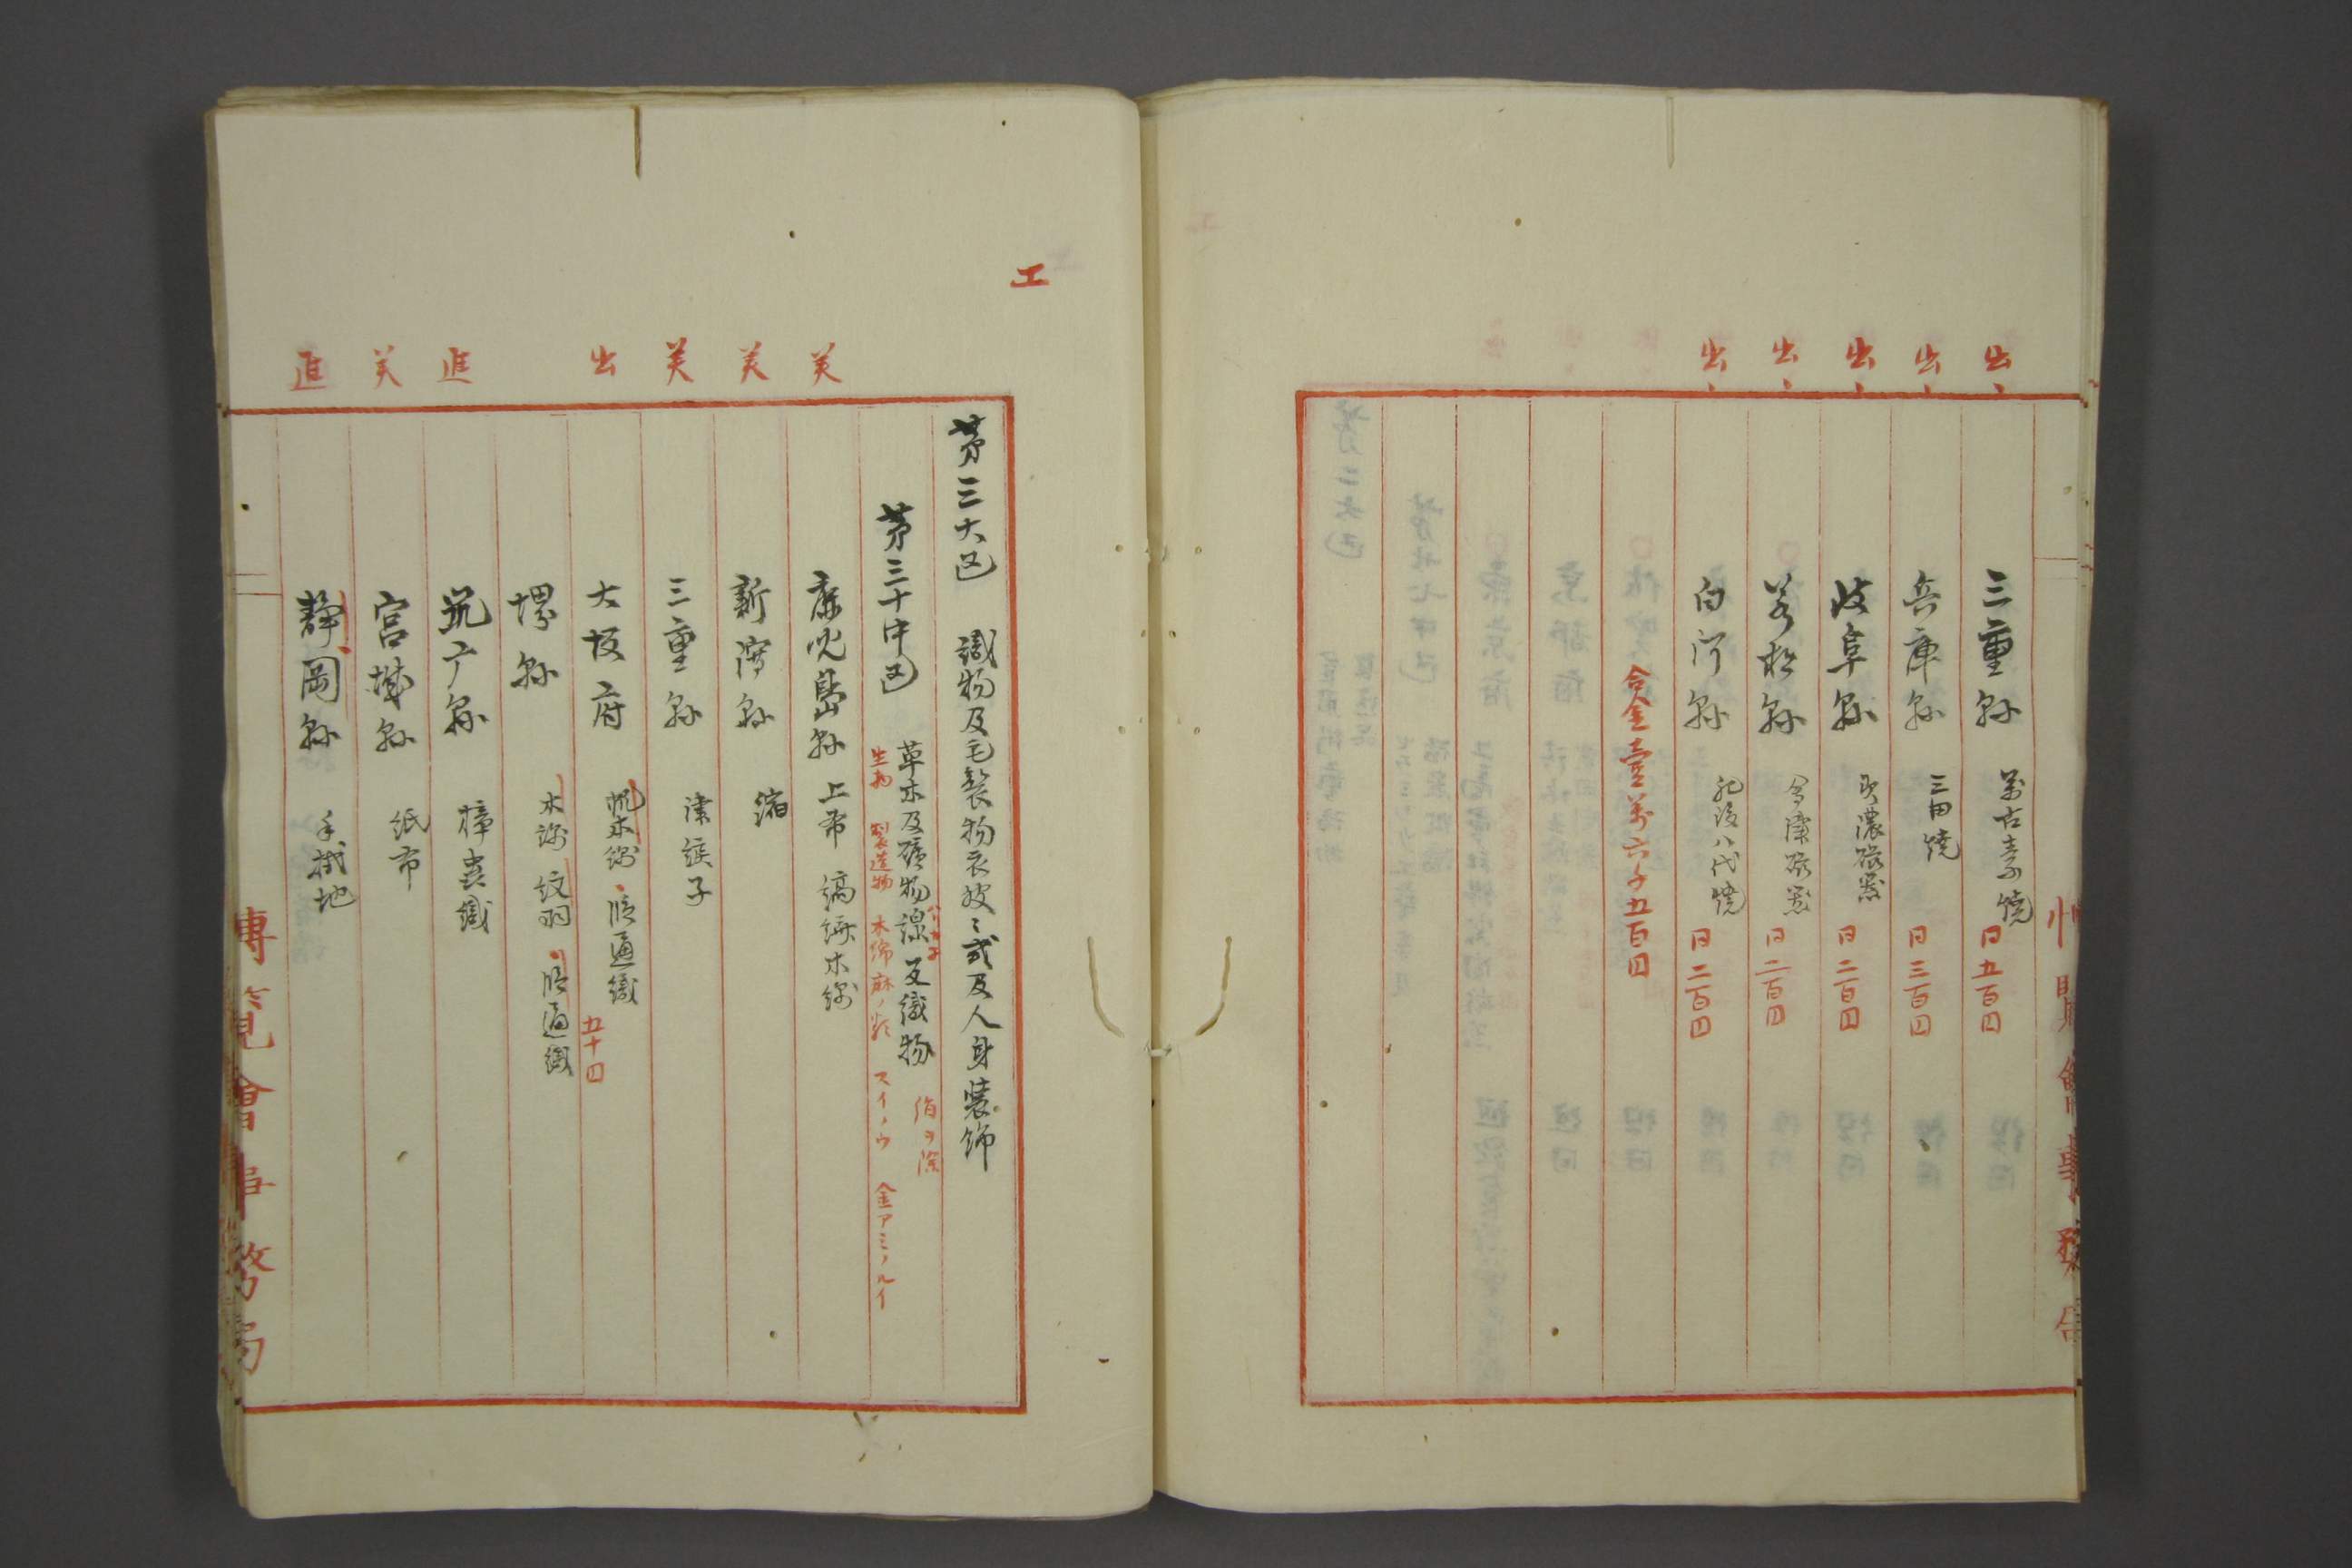 出 三重縣 萬古青燒 同五百円
出 兵庫縣 三田燒 同三百円
出 岐阜縣 美濃磁器 同二百円
出 若松縣 會津磁器 同二百円
出 白河縣 肥後八代燒 同二百円
合金壹萬六千五百円
工
第三大区 織物及毛製物衣紋ミ式及人身装飾
第三十中区 草木及礦物線ノ織物 絹ヲ除
生物 製造物 木綿麻ノ類 スイノウ 金アミノルイ
美 鹿児島縣 上布 縞縮木綿
美 新潟縣 縮
美 三重縣 津綟子
出 大坂府 帆木綿 段通織 五十円
堺縣 木綿 紋羽 段通織
進 筑广縣 樟蚕織
美 宮城縣 紙布
進 静岡縣 手拭地
博覧會事務局